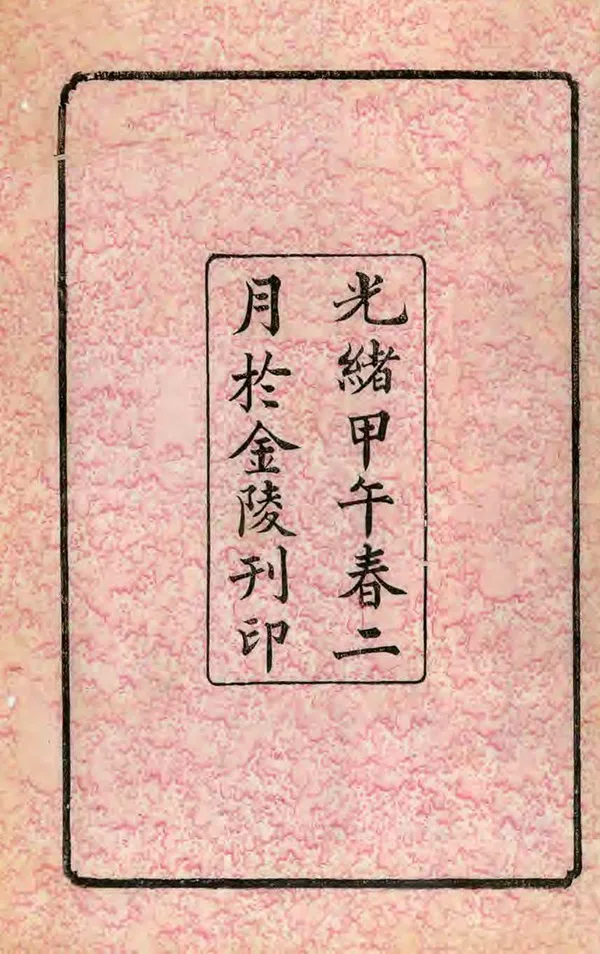 光緒甲午春二
月於金陵刊印